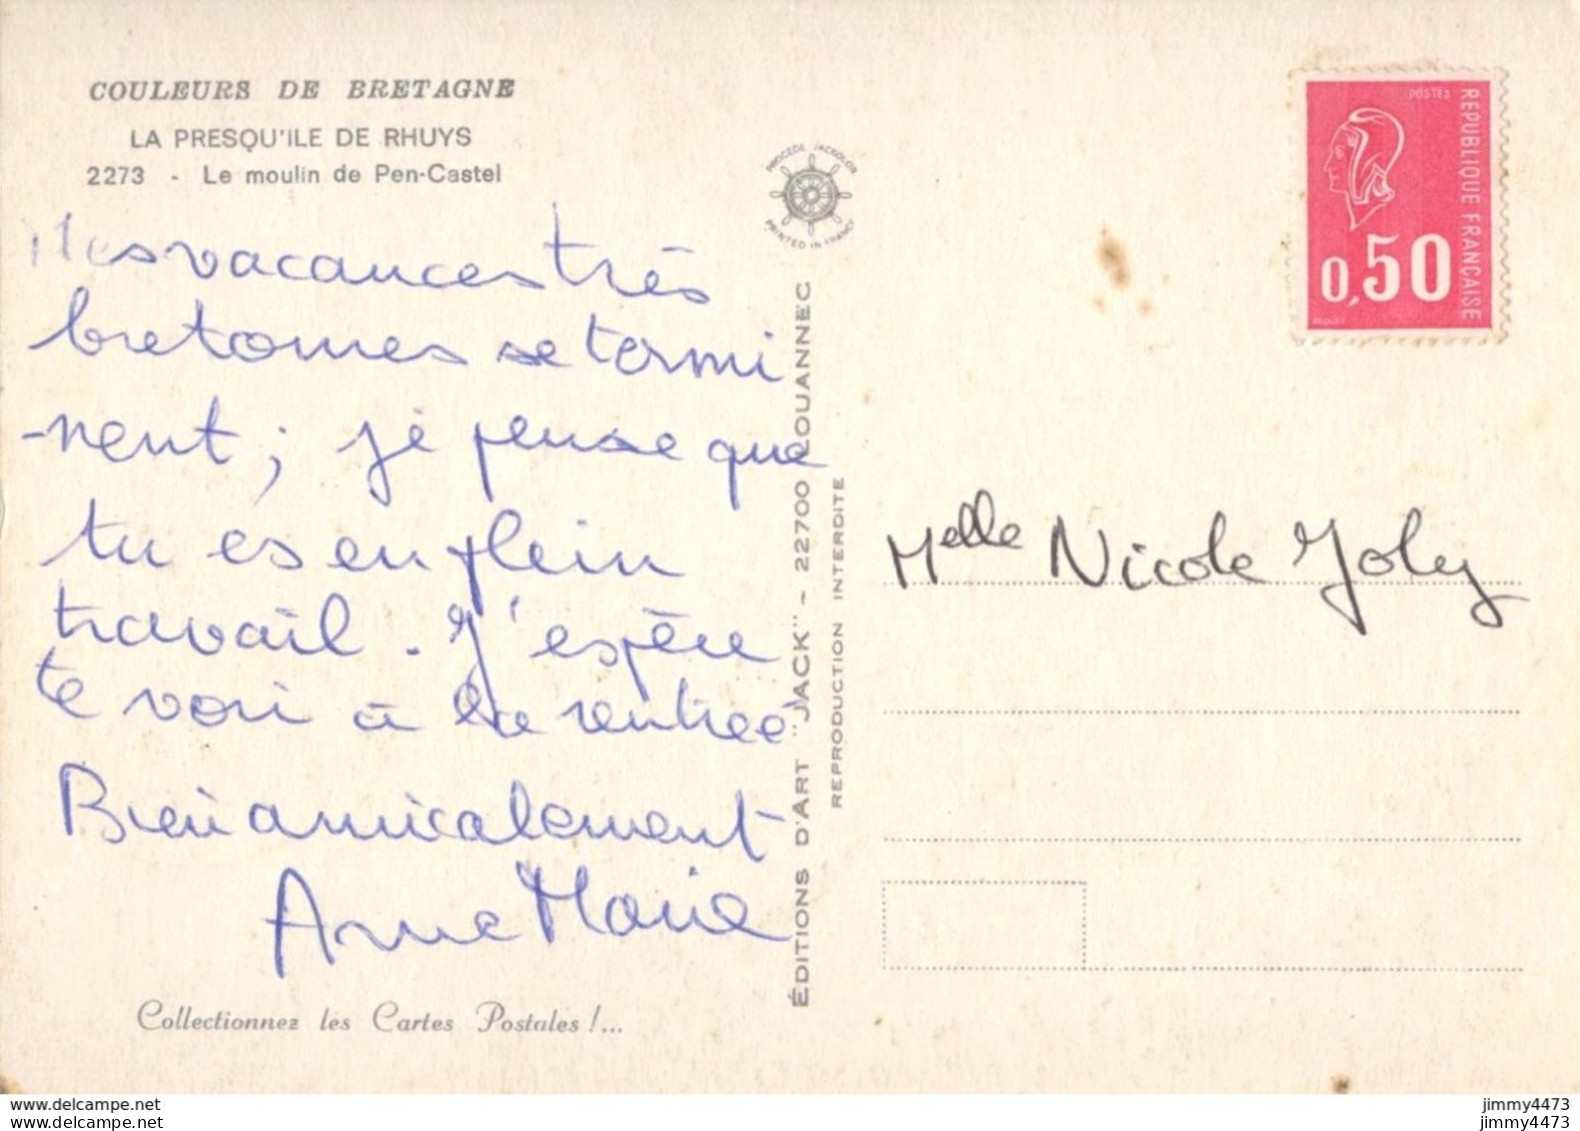 COULEURS DE BRETAGNE
LA PRESQU'ILE DE RHUYS
2273 - Le moulin de Pen-Castel
Mes vacances très
bretonnes se termi
-nent ; je pense que
tu es en plein
travail. J'espère
te voir à la rentrée
Bien amicalement
Anne Marie
Collectionnez les Cartes Postales !...
PROCÉDÉ JACKOLOR
PRINTED IN FRANCE
ÉDITIONS D'ART "JACK" - 22700 LOUANNEC
REPRODUCTION INTERDITE
POSTES
REPUBLIQUE FRANÇAISE
0,50
Melle Nicole Joly
www.delcampe.net
your collector website
jimmy4473
jimmy4473